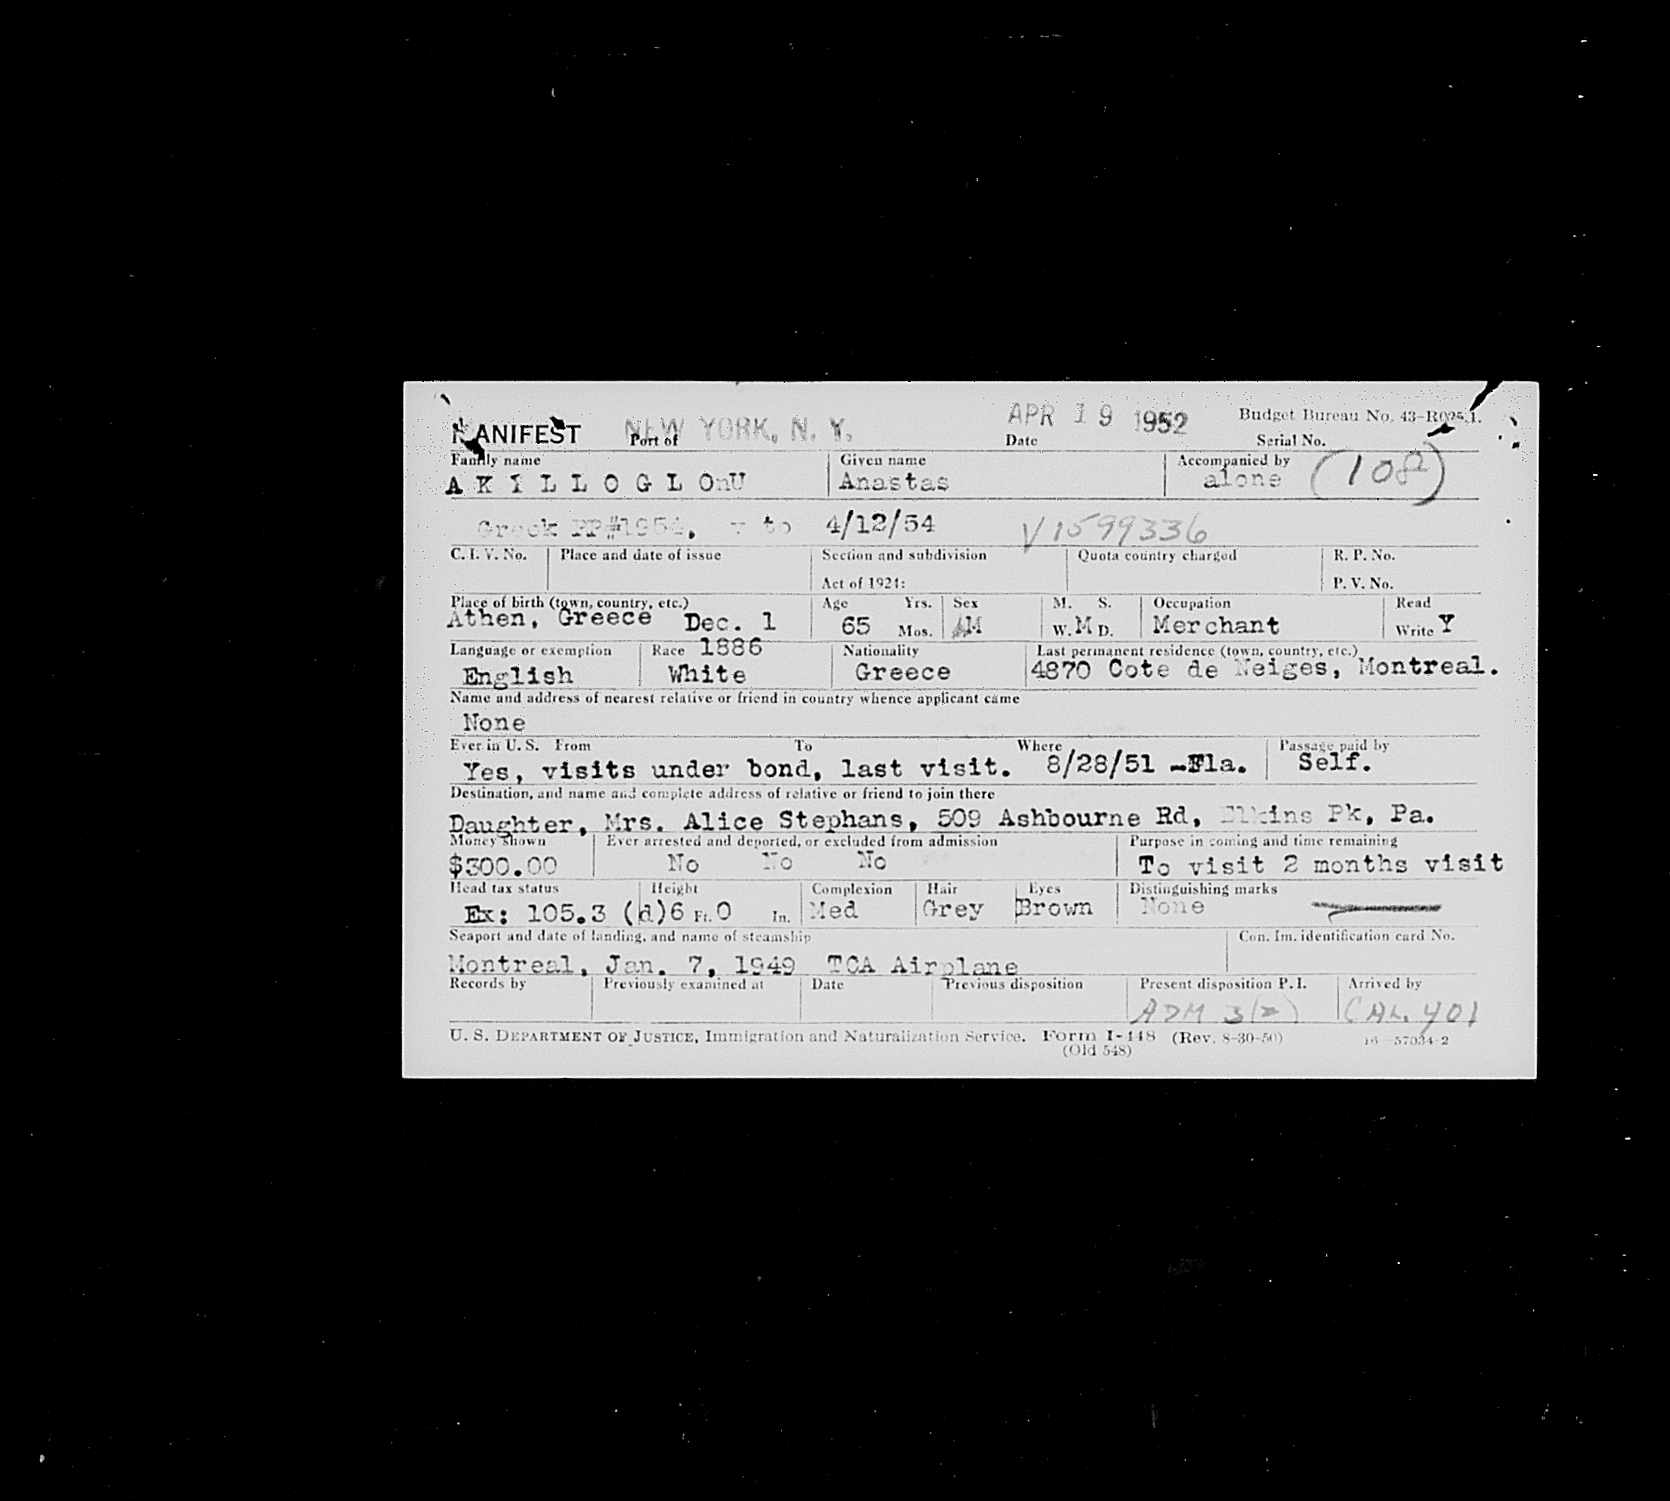 MANIFEST Port of NEW YORK, N. Y. Date APR 19 1952 Budget Bureau No. 43-R025.1.
Serial No.
Family name Given name Accompanied by
A K I L L O G L OnU Anastas alone (108)
Greek PP#1954, v to 4/12/54 V1599336
C. I. V. No. Place and date of issue Section and subdivision Quota country charged R. P. No.
Act of 1924: P. V. No.
Place of birth (town, country, etc.) Age Yrs. Sex M. S. Occupation Read
Athen, Greece Dec. 1 65 Mos. M W. M D. Merchant Write Y
Language or exemption Race 1886 Nationality Last permanent residence (town, country, etc.)
English White Greece 4870 Cote de Neiges, Montreal.
Name and address of nearest relative or friend in country whence applicant came
None
Ever in U. S. From To Where Passage paid by
Yes, visits under bond, last visit. 8/28/51 -Fla. Self.
Destination, and name and complete address of relative or friend to join there
Daughter, Mrs. Alice Stephans, 509 Ashbourne Rd, Elkins Pk, Pa.
Money shown Ever arrested and deported, or excluded from admission Purpose in coming and time remaining
$300.00 No No No To visit 2 months visit
Head tax status Height Complexion Hair Eyes Distinguishing marks
Ex: 105.3 (d) 6 Ft. 0 In. Med Grey Brown None
Seaport and date of landing, and name of steamship Con. Im. identification card No.
Montreal, Jan. 7, 1949 TCA Airplane
Records by Previously examined at Date Previous disposition Present disposition P. I. Arrived by
ADM 3(2) CAL. 401
U. S. DEPARTMENT OF JUSTICE, Immigration and Naturalization Service. Form I-448 (Rev. 8-30-50) 16—57034-2
(Old 548)